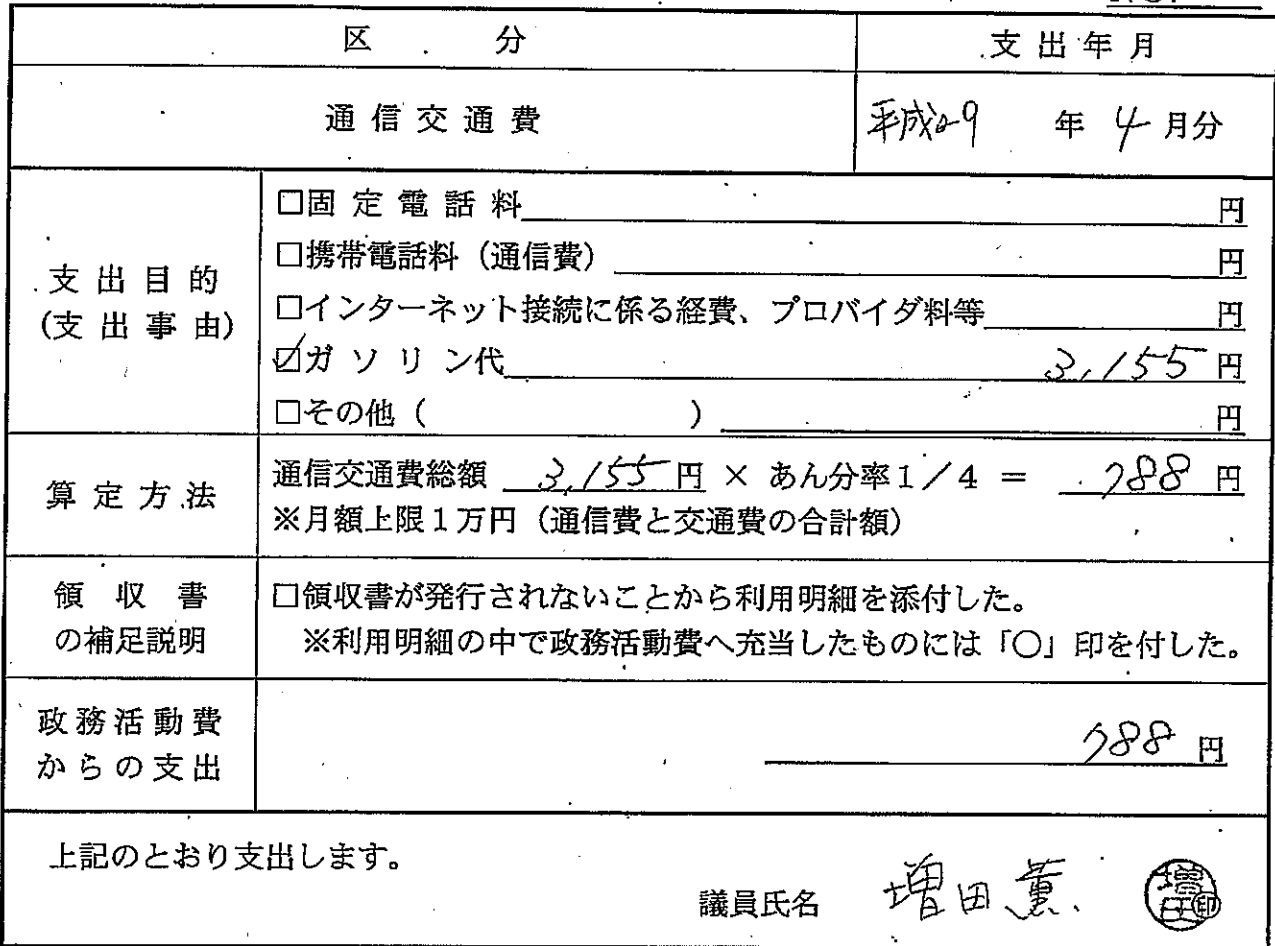 No.
区 分
支出年月
通信交通費
平成29 年 4 月分
支出目的
(支出事由)
□固定電話料 円
□携帯電話料(通信費) 円
□インターネット接続に係る経費、プロバイダ料等 円
☑ガソリン代 3,155 円
□その他( ) 円
算定方法
通信交通費総額 3,155 円 × あん分率1/4 = 788 円
※月額上限1万円(通信費と交通費の合計額)
領収書
の補足説明
□領収書が発行されないことから利用明細を添付した。
※利用明細の中で政務活動費へ充当したものには「○」印を付した。
政務活動費
からの支出
788 円
上記のとおり支出します。
議員氏名 増田薫
増田
印